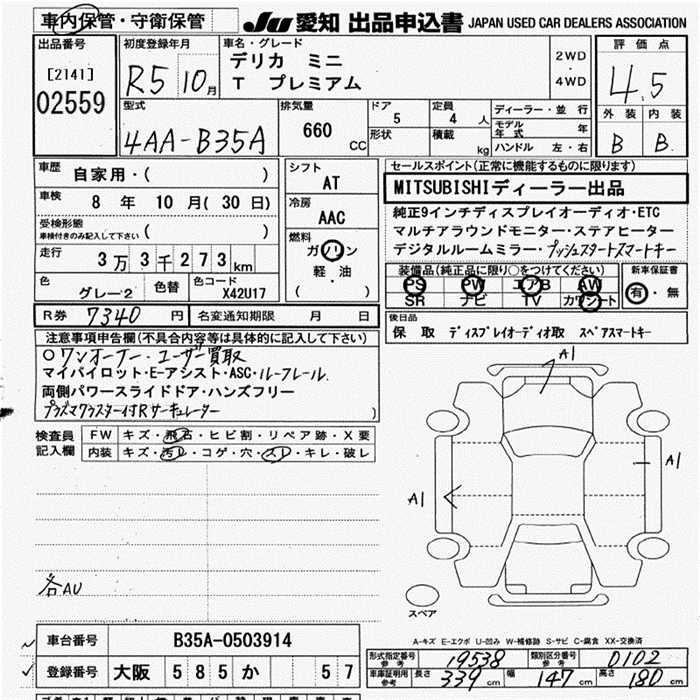 車内保管・守衛保管
JU 愛知 出品申込書 JAPAN USED CAR DEALERS ASSOCIATION
出品番号
[2141]
02559
初度登録年月
R5 10月
車名・グレード
デリカ ミニ
T プレミアム
2WD
・
4WD
評価点
4.5
外装 内装
B B
型式
4AA-B35A
排気量
660 CC
ドア
5
形状
定員
4 人
積載
kg
ディーラー・並行
モデル年式 年
ハンドル 左・右
車歴
自家用・( )
車検
8 年 10 月( 30 日)
受検形態
車検付きのみ記入して下さい ( )
走行
3万3千273km
色
グレー2
色替
色コード
X42U17
シフト
AT
冷房
AAC
燃料
ガソリン
軽・油
( )
セールスポイント(正常に機能するものに限ります)
MITSUBISHIディーラー出品
純正9インチディスプレイオーディオ・ETC
マルチアラウンドモニター・ステアヒーター
デジタルルームミラー・プッシュスタートスマートキー
装備品(純正品に限り○をつけてください)
PS PW エアB AW
SR ナビ TV カワシート
新車保証書
有・無
R券 7340 円 名変通知期限 月 日
後日品
保 取 ディスプレイオーディオ取 スペアスマートキー
注意事項申告欄(不具合内容等は具体的に記入して下さい)
○ワンオーナー・ユーザー買取
マイパイロット・E-アシスト・ASC・ルーフレール.
両側パワースライドドア・ハンズフリー
プラズマクラスター付Rサーキュレーター
)
検査員記入欄
FW キズ・飛石・ヒビ割・リペア跡・X要
内装 キズ・汚レ・コゲ・穴・スレ・キレ・破レ
A1
A1
A1
各AU
スペア
A-キズ E-エクボ U-凹み W-補修跡 S-サビ C-腐食 XX-交換済
車台番号 B35A-0503914
登録番号 大阪 585 か 57
形式指定番号 参考 19538 類別区分番号 参考 0102
車庫証明用 参考 長さ 339 cm 幅 147 cm 高さ 180 cm